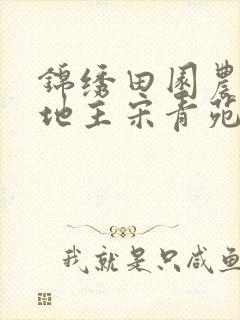 锦绣田园農
地主宋青苑
我就是只咸鱼